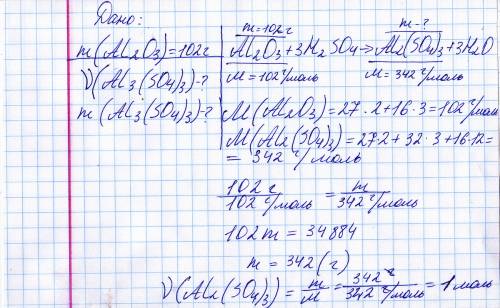 Дано:
m(Al2O3)=102г
ν(Al3(SO4)3)-?
m(Al3(SO4)3)-?
m=102г m-?
Al2O3+3H2SO4→Al2(SO4)3+3H2O
M=102г/моль M=342г/моль
M(Al2O3)=27·2+16·3=102г/моль
M(Al2(SO4)3)=27·2+32·3+16·12=
=342г/моль
102г/102г/моль = m/342г/моль
102m=34884
m=342(г)
ν(Al2(SO4)3)=m/M=342г/342г/моль=1моль